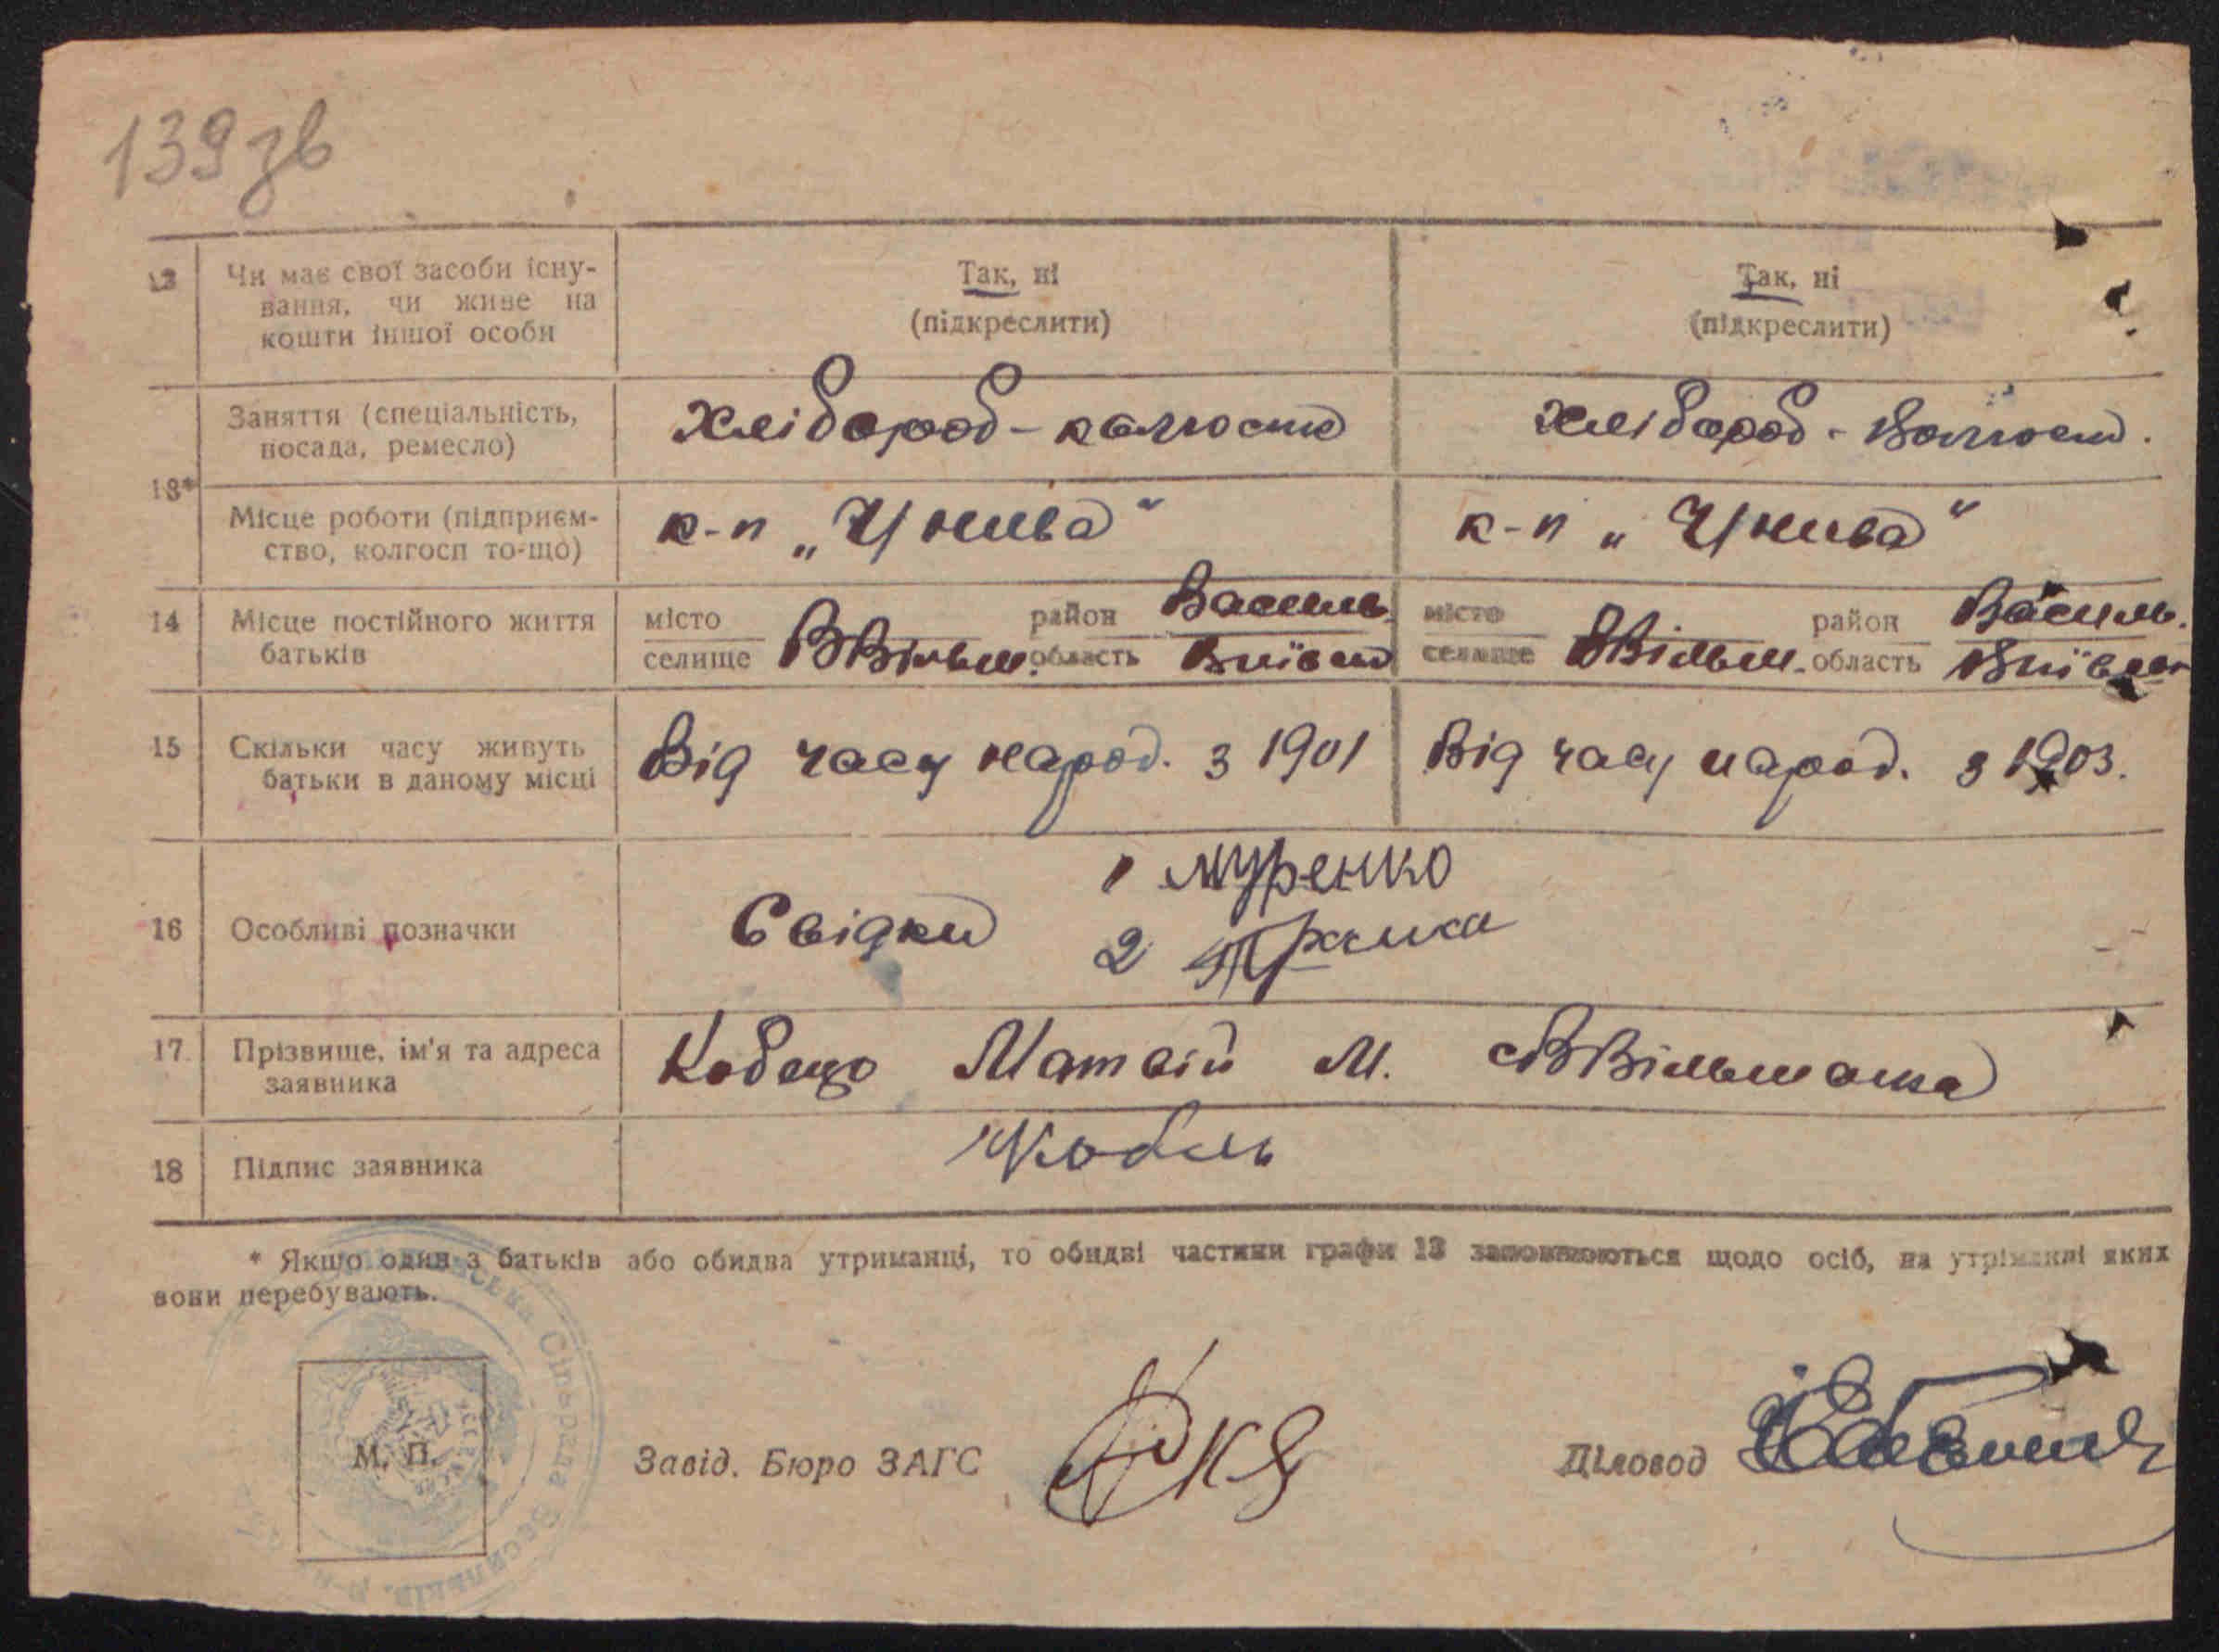 139 зв
12 Чи має свої засоби існу-
вання, чи живе на
кошти іншої особи
Так, ні
(підкреслити)
Так, ні
(підкреслити)
13*
Заняття (спеціальність,
посада, ремесло)
хлібороб-
хлібороб-
Місце роботи (підприєм-
ство, колгосп то-що)
к-п „
к-п „
14 Місце постійного життя
батьків
місто
селище
ВВільш.
район Василь.
область Київськ
місто
селище
ВВільш.
район Василь.
область Київськ
15 Скільки часу живуть
батьки в даному місці
Від часу народ. з 1901
Від часу народ. з 1903.
16 Особливі позначки
Свідки
1 Муренко
2
17 Прізвище, ім'я та адреса
заявника
Матвій М. с ВВільшанка
18 Підпис заявника
* Якщо один з батьків або обидва утриманці, то обидві частини графи 13 заповнюються щодо осіб, на утріманні яких
вони перебувають.
М. П.
Сільрада Васильків. р-н
Завід. Бюро ЗАГС
Діловод